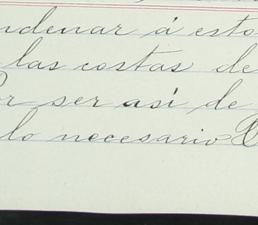 ndenar á esto
las costas de
or ser así de
lo necesario